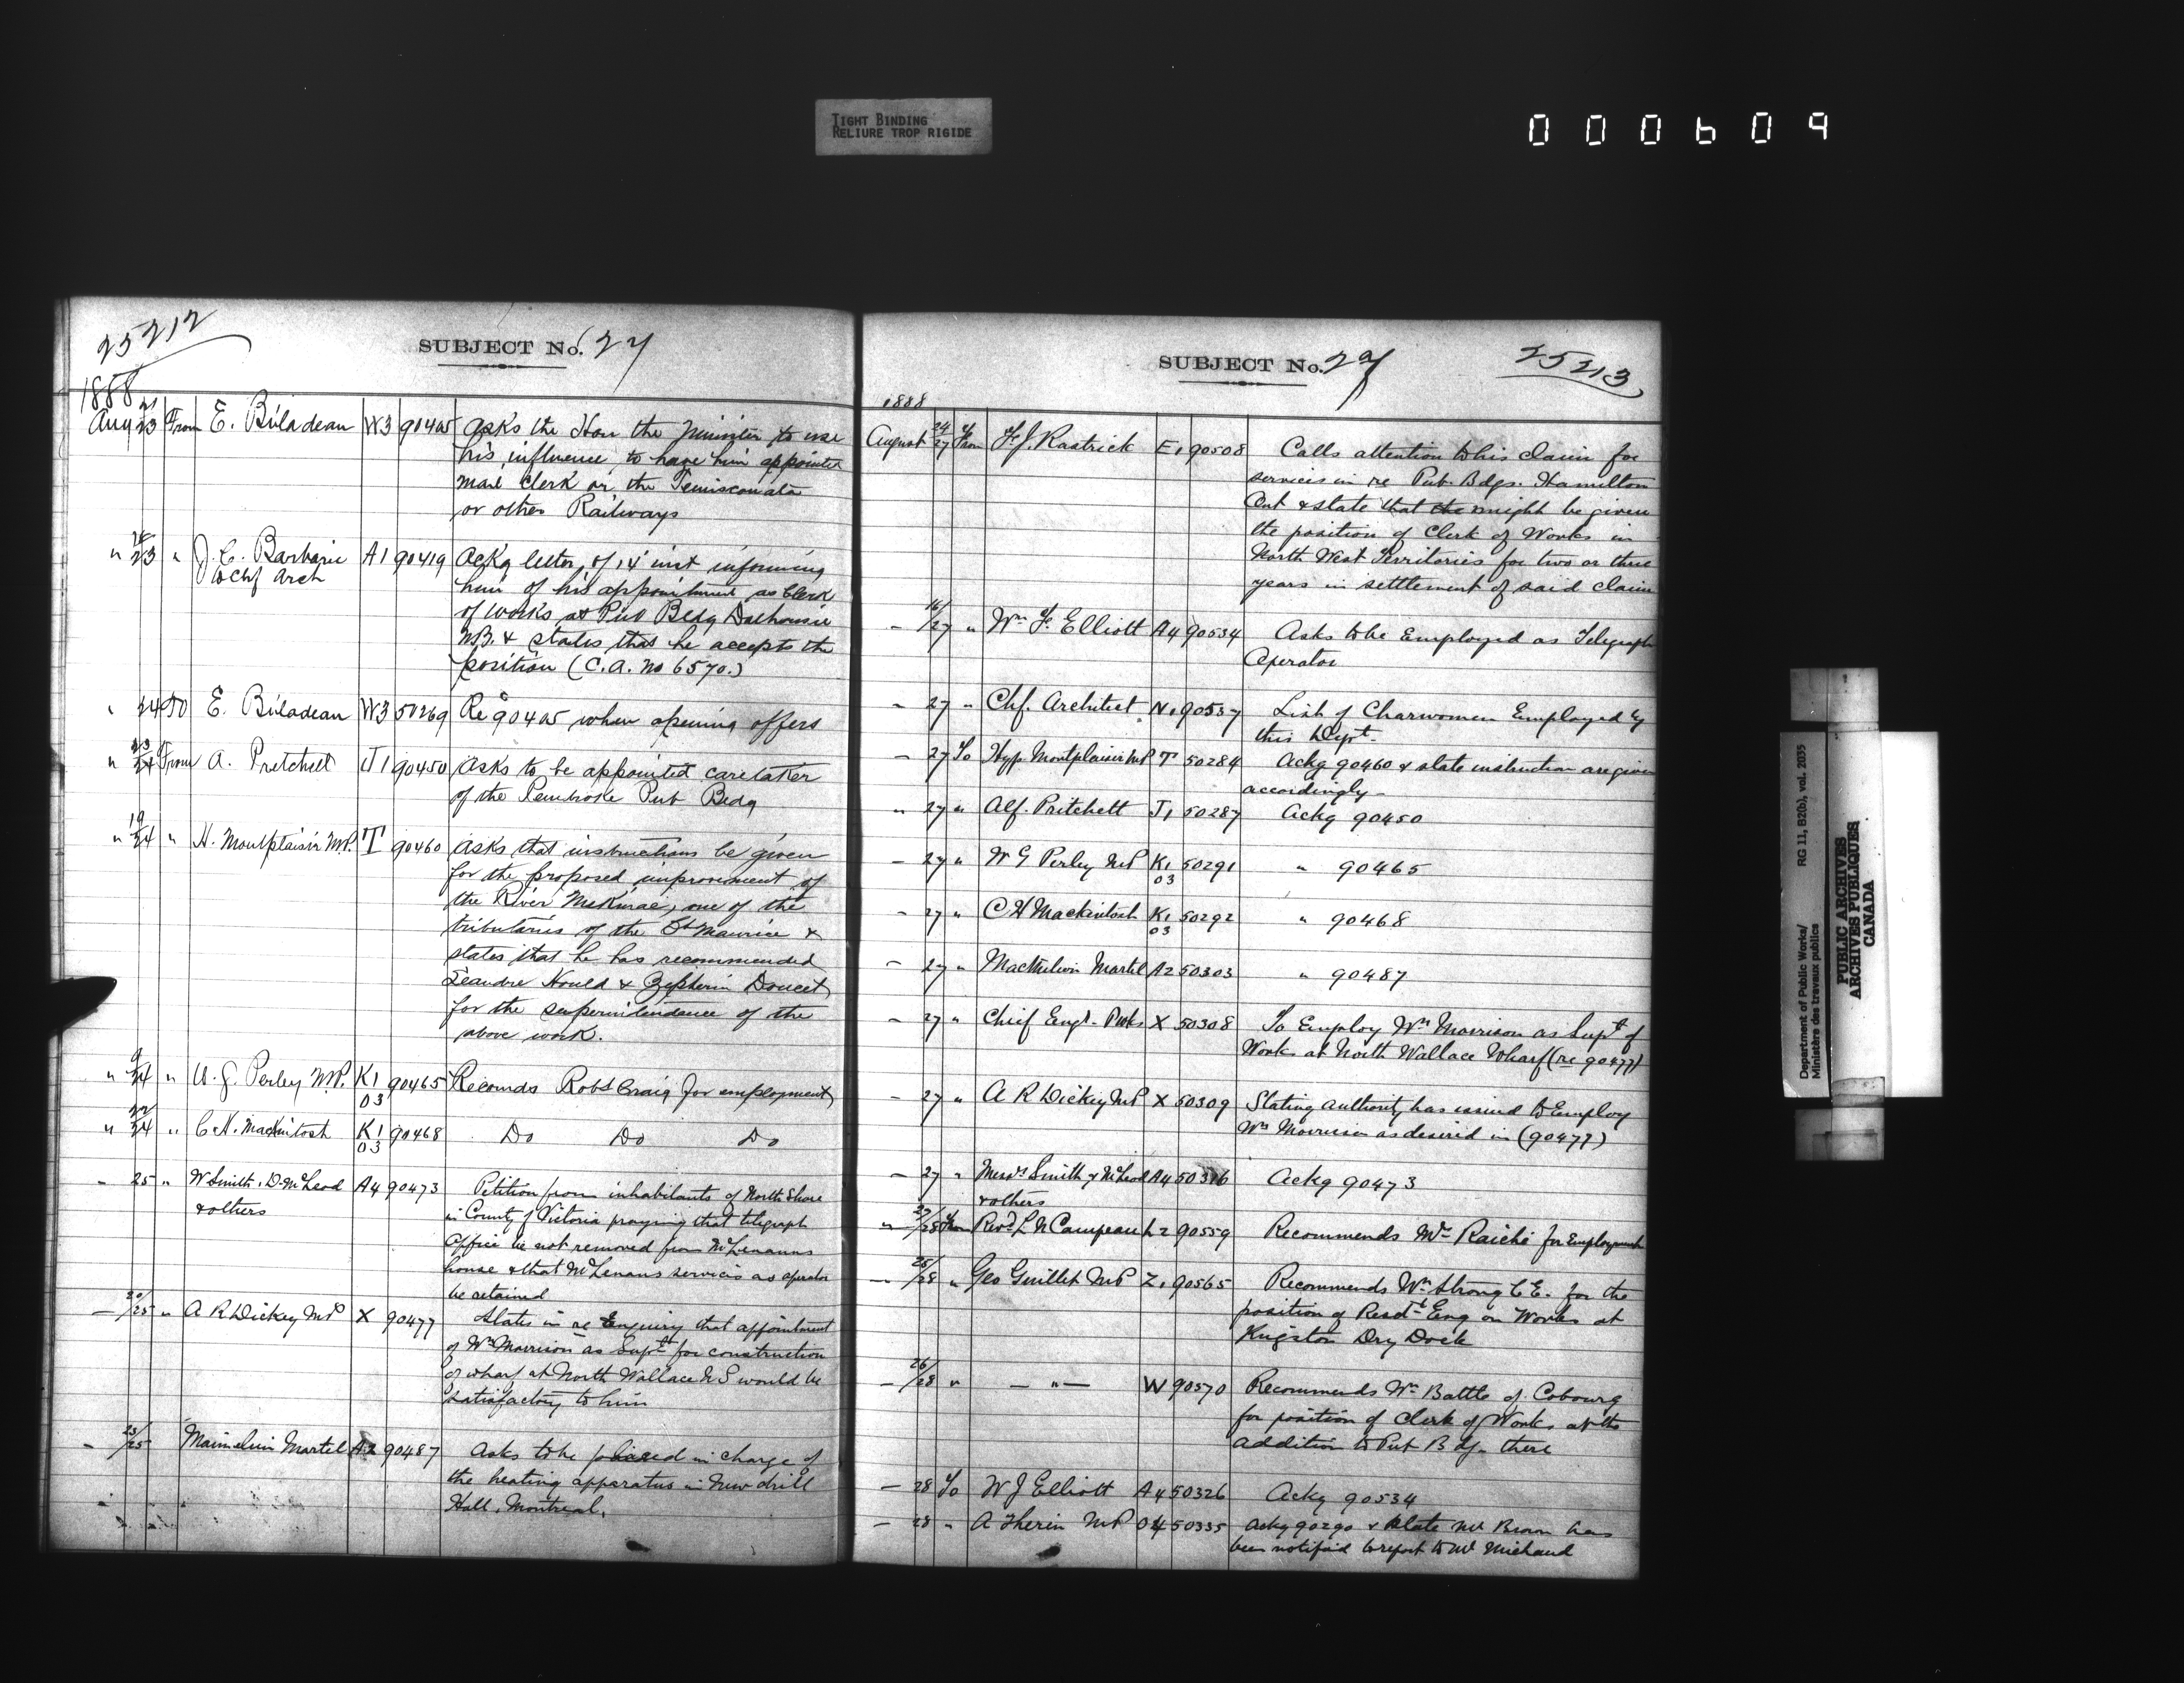 TIGHT BINDING
RELIURE TROP RIGIDE
000609
25212
SUBJECT No. 27
1888
Aug 21/23 From E. Biladeau W3 90405 Asks the Hon the Minister to use
his influence to have him appointed
mail clerk on the Temiscouata
or other Railways
" 23 " J. C. Barbarie A1 90419 Ackg letter of 14 inst informing
to Chf Arch
him of his appointment as Clerk
of Works at Pub Bldg Dalhousie
N.B. & states that he accepts the
position (C.A. No 6570.)
" 24 To E. Biladeau W3 50269 Re 90405 when opening offers
" 23/24 From A. Pretchett J1 90450 Asks to be appointed caretaker
of the Pembroke Pub Bldg
" 19/24 " H. Montplaisir M.P. T 90460 Asks that instructions be given
for the proposed improvement of
the River one of the
tributaries of the St Maurice &
states that he has recommended
Leandre Hould & Zepherin Doucet
for the superintendence of the
above work.
" 9/24 " W. G. Perley M.P. K1 03 90465 Recomds Robt Craig for employment
" 22/24 " C. H. Mackintosh K1 03 90468 Do Do Do
- 25 " W Smith, D. McLeod A4 90473 Petition from inhabitants of North Shore
& others
in County of Victoria praying that telegraph
Office be not removed from McLenanns
house & that McLenans services as operator
be retained
- 20/25 " A R Dickey MP X 90477 States in re Enquiry that appointment
of Wm Morrison as Supt for construction
of wharf at North Wallace N S would be
satisfactory to him
- 23/25 Martel A2 90487 Asks to be placed in charge of
the heating apparatus in New drill
Hall, Montreal.
SUBJECT No. 27
25213
1888
August 24/27 From F. J. Rastrick E1 90508 Calls attention to his claim for
services in re Pub. Bdgs. Hamilton
Ont & state that he might be given
the position of Clerk of Works in
North West Territories for two or three
years in settlement of said claim
- 16/27 " Wm F. Elliott A4 90534 Asks to be Employed as Telegraph
Operator
- 27 " Chf. Architect N1 90537 List of Charwomen Employed by
this Dept.
- 27 To Hyp. Montplaisir MP T 50284 Ackg 90460 & state instruction are given
accordingly
" 27 " Alf. Pritchett J1 50287 Ackg 90450
- 27 " W G Perley MP K1 03 50291 " 90465
- 27 " C H Mackintosh K1 03 50292 " 90468
- 27 " Martel A2 50303 " 90487
- 27 " Chief Engr. X 50308 To Employ Wm Morrison as Supt of
Works at North Wallace Wharf (re 90477)
- 27 " A R Dickey MP X 50309 Stating authority has issued to Employ
Wm Morrison as desired in (90477)
- 27 " Messrs Smith & McLeod A4 50316 Ackg 90473
& others
" 27/28 From Revd L N Campeau L2 90559 Recommends Mr Raiche for Employment
- 25/28 " Geo Guillet MP Z1 90565 Recommends Wm Strong C.E. for the
position of Resdt Eng on Works at
Kingston Dry Dock
- 26/28 " - " - W 90570 Recommends Wm Battle of Cobourg
for position of Clerk of Works at the
addition to Pub Bdg. there
- 28 To W J Elliott A4 50326 Ackg 90534
- 28 " A Therien MP O4 50335 Ackg 90290 & state Mr Brown has
been notified to report to Mr Michaud
Department of Public Works/
Ministère des travaux publics
RG 11, B2(b), vol. 2035
PUBLIC ARCHIVES
ARCHIVES PUBLIQUES
CANADA